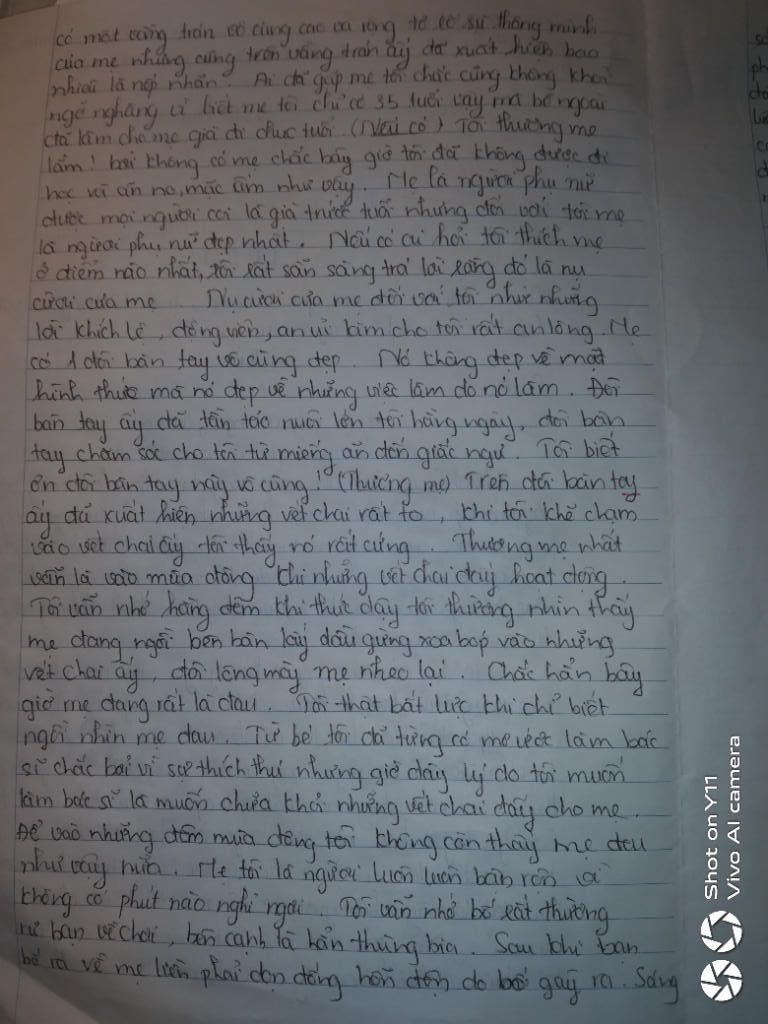 có một vầng trán vô cùng cao và rộng tỏ rõ sự thông minh
của mẹ nhưng cũng trên vầng trán ấy đã xuất hiện bao
nhiêu là nếp nhăn. Ai đã gặp mẹ tôi chắc cũng không khỏi
ngỡ nghàng vì biết mẹ tôi chỉ có 35 tuổi vậy mà bề ngoài
đã làm cho mẹ già đi chục tuổi. (Nếu có) Tôi thương mẹ
lắm! bởi không có mẹ chắc bây giờ tôi đã không được đi
học và ăn no, mặc ấm như vậy. Mẹ là người phụ nữ
được mọi người coi là già trước tuổi nhưng đối với tôi mẹ
là người phụ nữ đẹp nhất. Nếu có ai hỏi tôi thích mẹ
ở điểm nào nhất, tôi rất sẵn sàng trả lời rằng đó là nụ
cười của mẹ Nụ cười của mẹ đối với tôi như những
lời khích lệ, động viên, an ủi làm cho tôi rất an lòng. Mẹ
có 1 đôi bàn tay vô cùng đẹp. Nó không đẹp về mặt
hình thức mà nó đẹp về những việc làm do nó làm. Đôi
bàn tay ấy đã tần tảo nuôi lớn tôi hằng ngày, đôi bàn
tay chăm sóc cho tôi từ miếng ăn đến giấc ngủ. Tôi biết
ơn đôi bàn tay này vô cùng! (Thương mẹ) Trên đôi bàn tay
ấy đã xuất hiện những vết chai rất to, khi tôi khẽ chạm
vào vết chai ấy tôi thấy nó rất cứng. Thương mẹ nhất
vẫn là vào mùa đông khi những vết chai dày hoạt động.
Tôi vẫn nhớ hằng đêm khi thức dậy tôi thường nhìn thấy
mẹ đang ngồi bên bàn lấy dầu gừng xoa bóp vào những
vết chai ấy, đôi lông mày mẹ nheo lại. Chắc hẳn bây
giờ mẹ đang rất là đau. Tôi thật bất lực khi chỉ biết
ngồi nhìn mẹ đau. Từ bé tôi đã từng có mơ ước làm bác
sĩ chắc bởi vì sự thích thú nhưng giờ đây lý do tôi muốn
làm bác sĩ là muốn chữa khỏi những vết chai đấy cho mẹ.
Để vào những đêm mùa đông tôi không còn thấy mẹ đau
như vậy nữa. Mẹ tôi là người luôn luôn bận rộn và
không có phút nào nghỉ ngơi. Tôi vẫn nhớ bố rất thường
rủ bạn về chơi, bên cạnh là hẳn thùng bia. Sau khi bạn
bố ra về mẹ liền phải dọn đống hỗn độn do bố gây ra. Sáng
Shot on Y11
Vivo AI camera